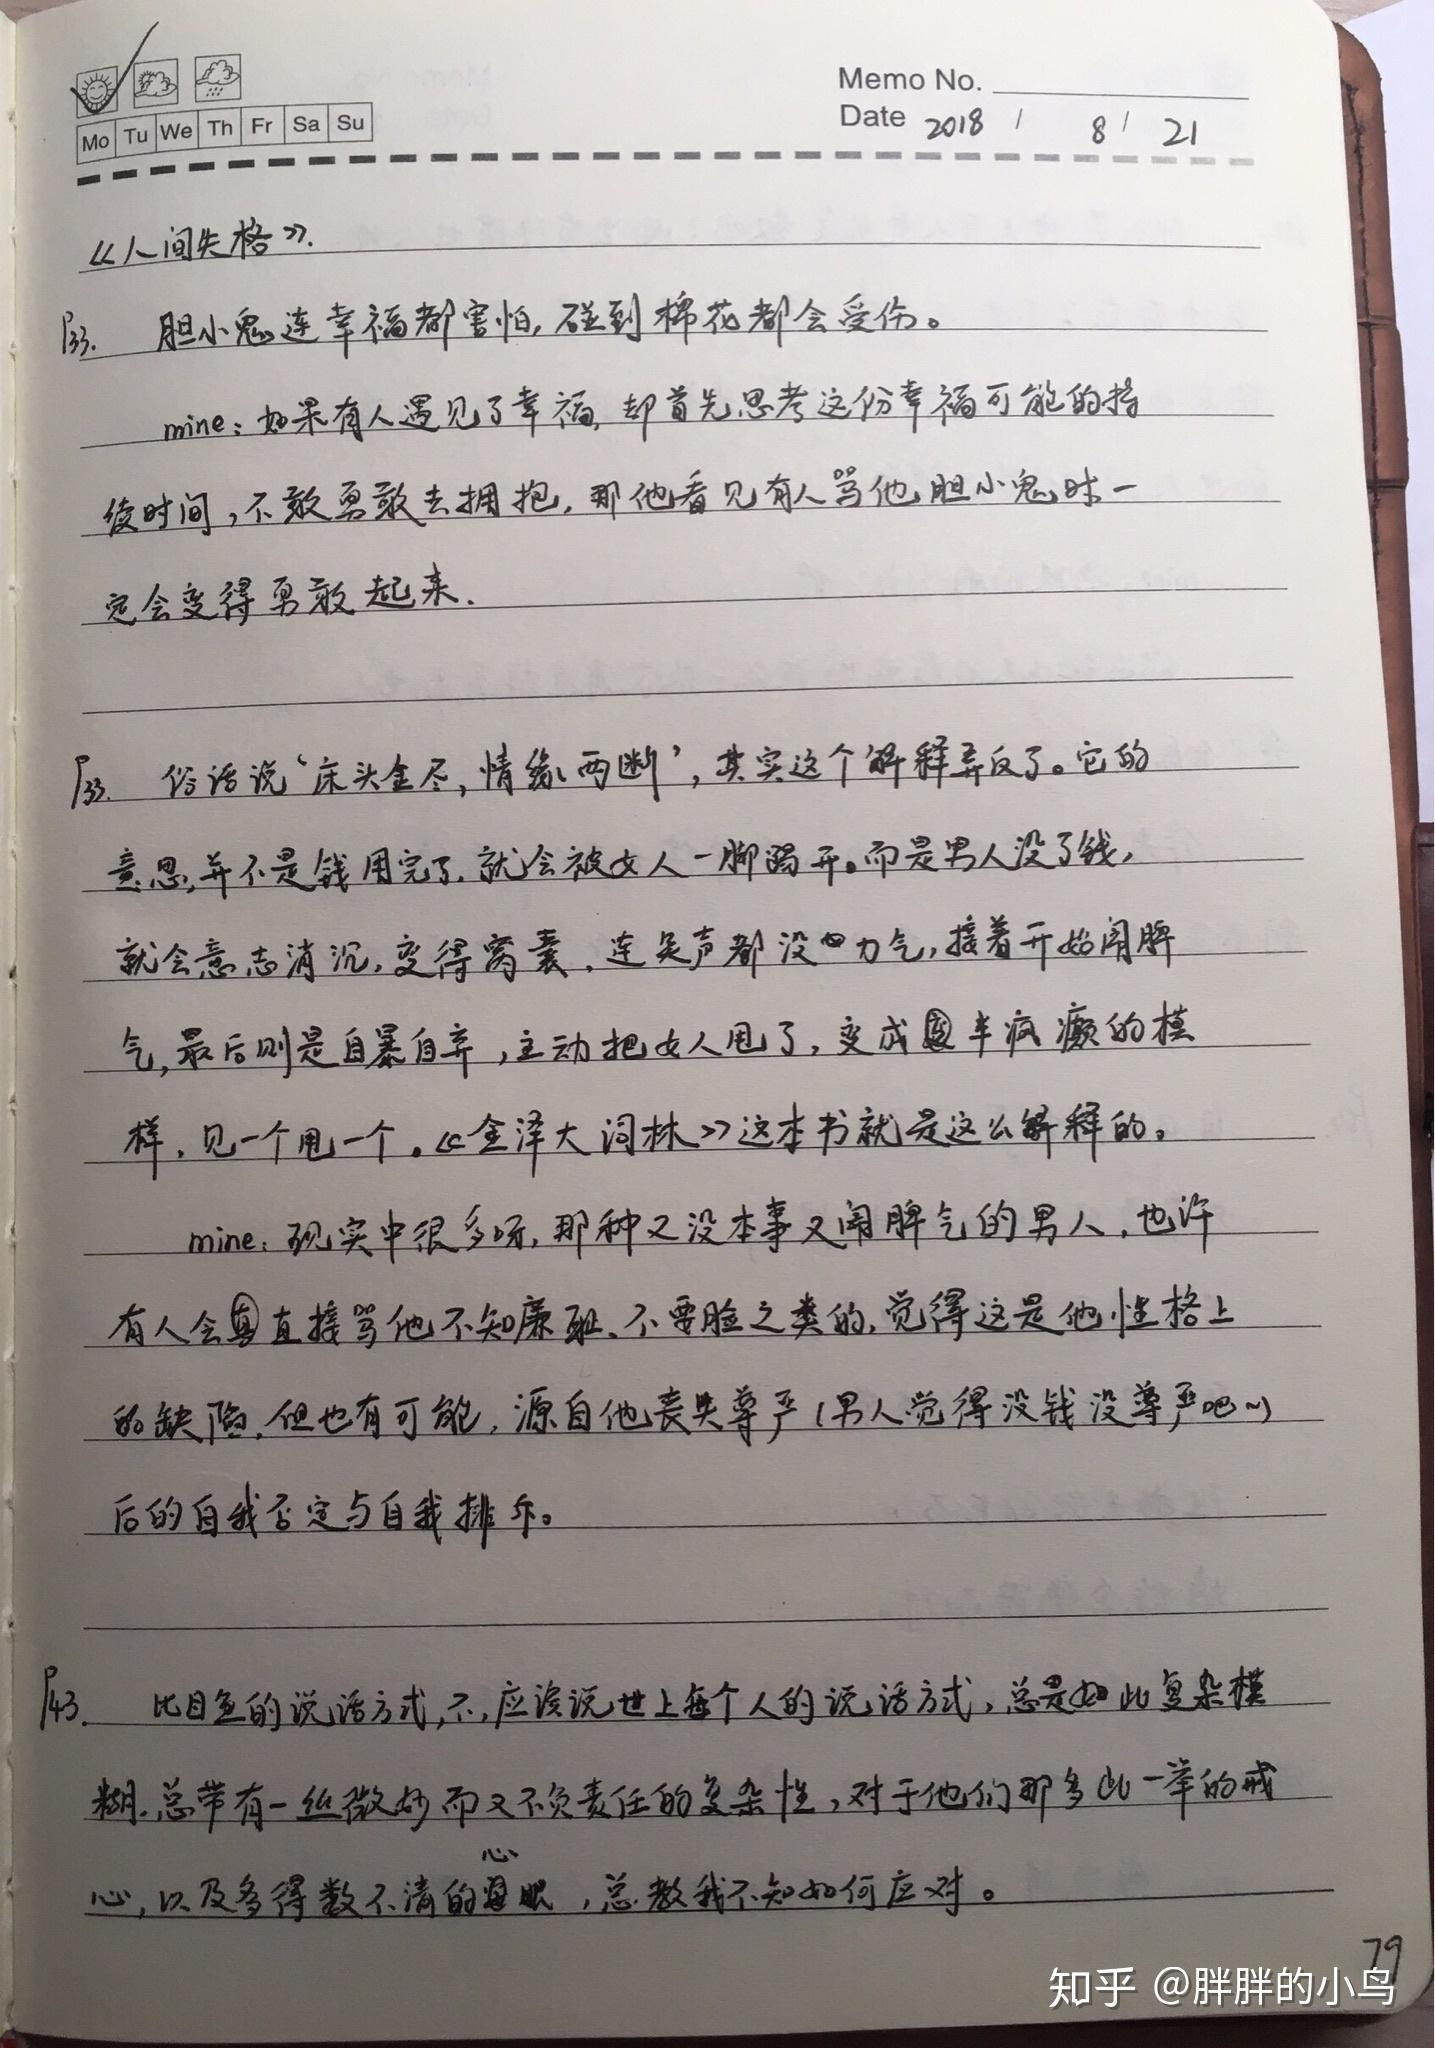 Memo No.
Mo Tu We Th Fr Sa Su
Date 2018 / 8 / 21
《人间失格》.
P33. 胆小鬼连幸福都害怕,碰到棉花都会受伤。
mine:如果有人遇见了幸福,却首先思考这份幸福可能的持
续时间,不敢勇敢去拥抱,那他看见有人骂他胆小鬼时一
定会变得勇敢起来.
P33. 俗话说‘床头金尽,情缘两断’,其实这个解释弄反了。它的
意思,并不是钱用完了,就会被女人一脚踢开。而是男人没了钱,
就会意志消沉,变得窝囊,连笑声都没力气,接着开始闹脾
气,最后则是自暴自弃,主动把女人甩了,变成半疯癫的模
样,见一个甩一个。《金泽大词林》这本书就是这么解释的。
mine:现实中很多呀,那种又没本事又闹脾气的男人,也许
有人会直接骂他不知廉耻、不要脸之类的,觉得这是他性格上
的缺陷,但也有可能,源自他丧失尊严(男人觉得没钱没尊严吧~)
后的自我否定与自我排斥。
P43. 比目鱼的说话方式,不,应该说世上每个人的说话方式,总是如此复杂模
糊.总带有一丝微妙而又不负责任的复杂性,对于他们那多此一举的戒
心,以及多得数不清的心眼,总教我不知如何应对。
79
知乎 @胖胖的小鸟